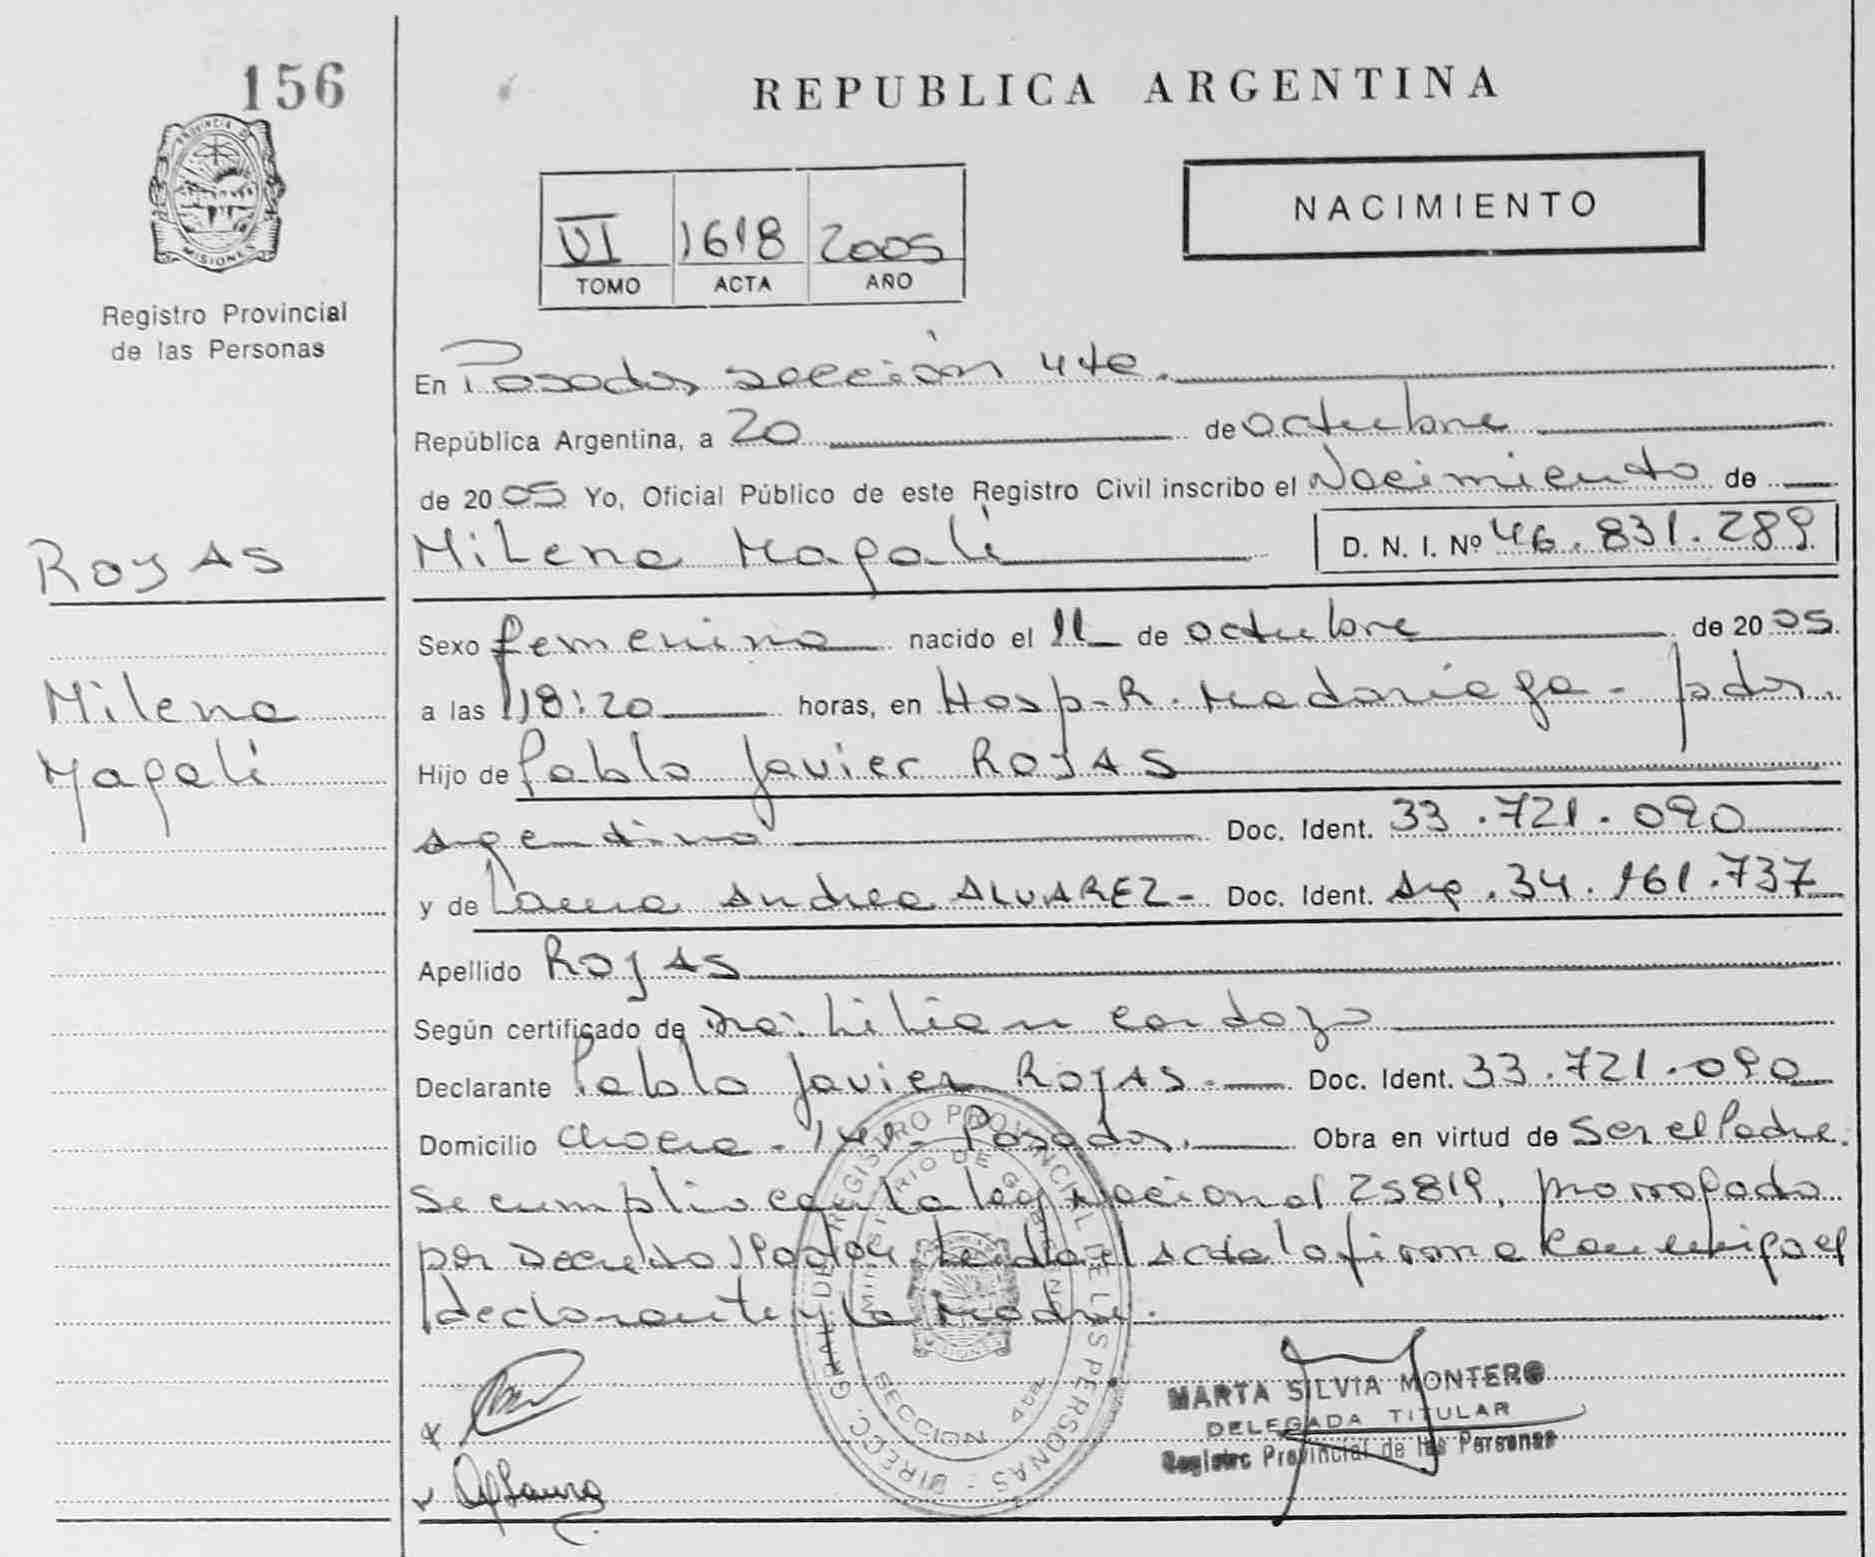 156
REPUBLICA ARGENTINA
PROVINCIA DE MISIONES
Registro Provincial
de las Personas
NACIMIENTO
VI 1618 2005
TOMO ACTA AÑO
En Posadas sección 4ta.
República Argentina, a 20 de octubre
de 2005 Yo, Oficial Público de este Registro Civil inscribo el Nacimiento de
ROJAS
Milena Magalí D. N. I. Nº 46.831.289
Sexo femenino nacido el 11 de octubre de 2005
Milena
a las 18:20 horas, en Hosp. R. Madariaga - Pdas.
Magalí
Hijo de Pablo Javier ROJAS
argentino Doc. Ident. 33.721.090
y de Laura Andrea ALVAREZ- Doc. Ident. Arg. 34.161.737
Apellido ROJAS
Según certificado de Dra: Lilian Cardozo
Declarante Pablo Javier ROJAS.- Doc. Ident. 33.721.090
Domicilio - Posadas. Obra en virtud de Ser el Padre.
Se cumplio con la ley Nacional 25819, prorrogado
por Decreto Leida el acta la firma conmigo el
declarante y la Madre.
DIRECC. GRAL. DEL REGISTRO PROVINCIAL DE LAS PERSONAS
MINISTERIO DE GOBIERNO
SECCION 4ta
MARTA SILVIA MONTERO
DELEGADA TITULAR
Registro Provincial de las Personas